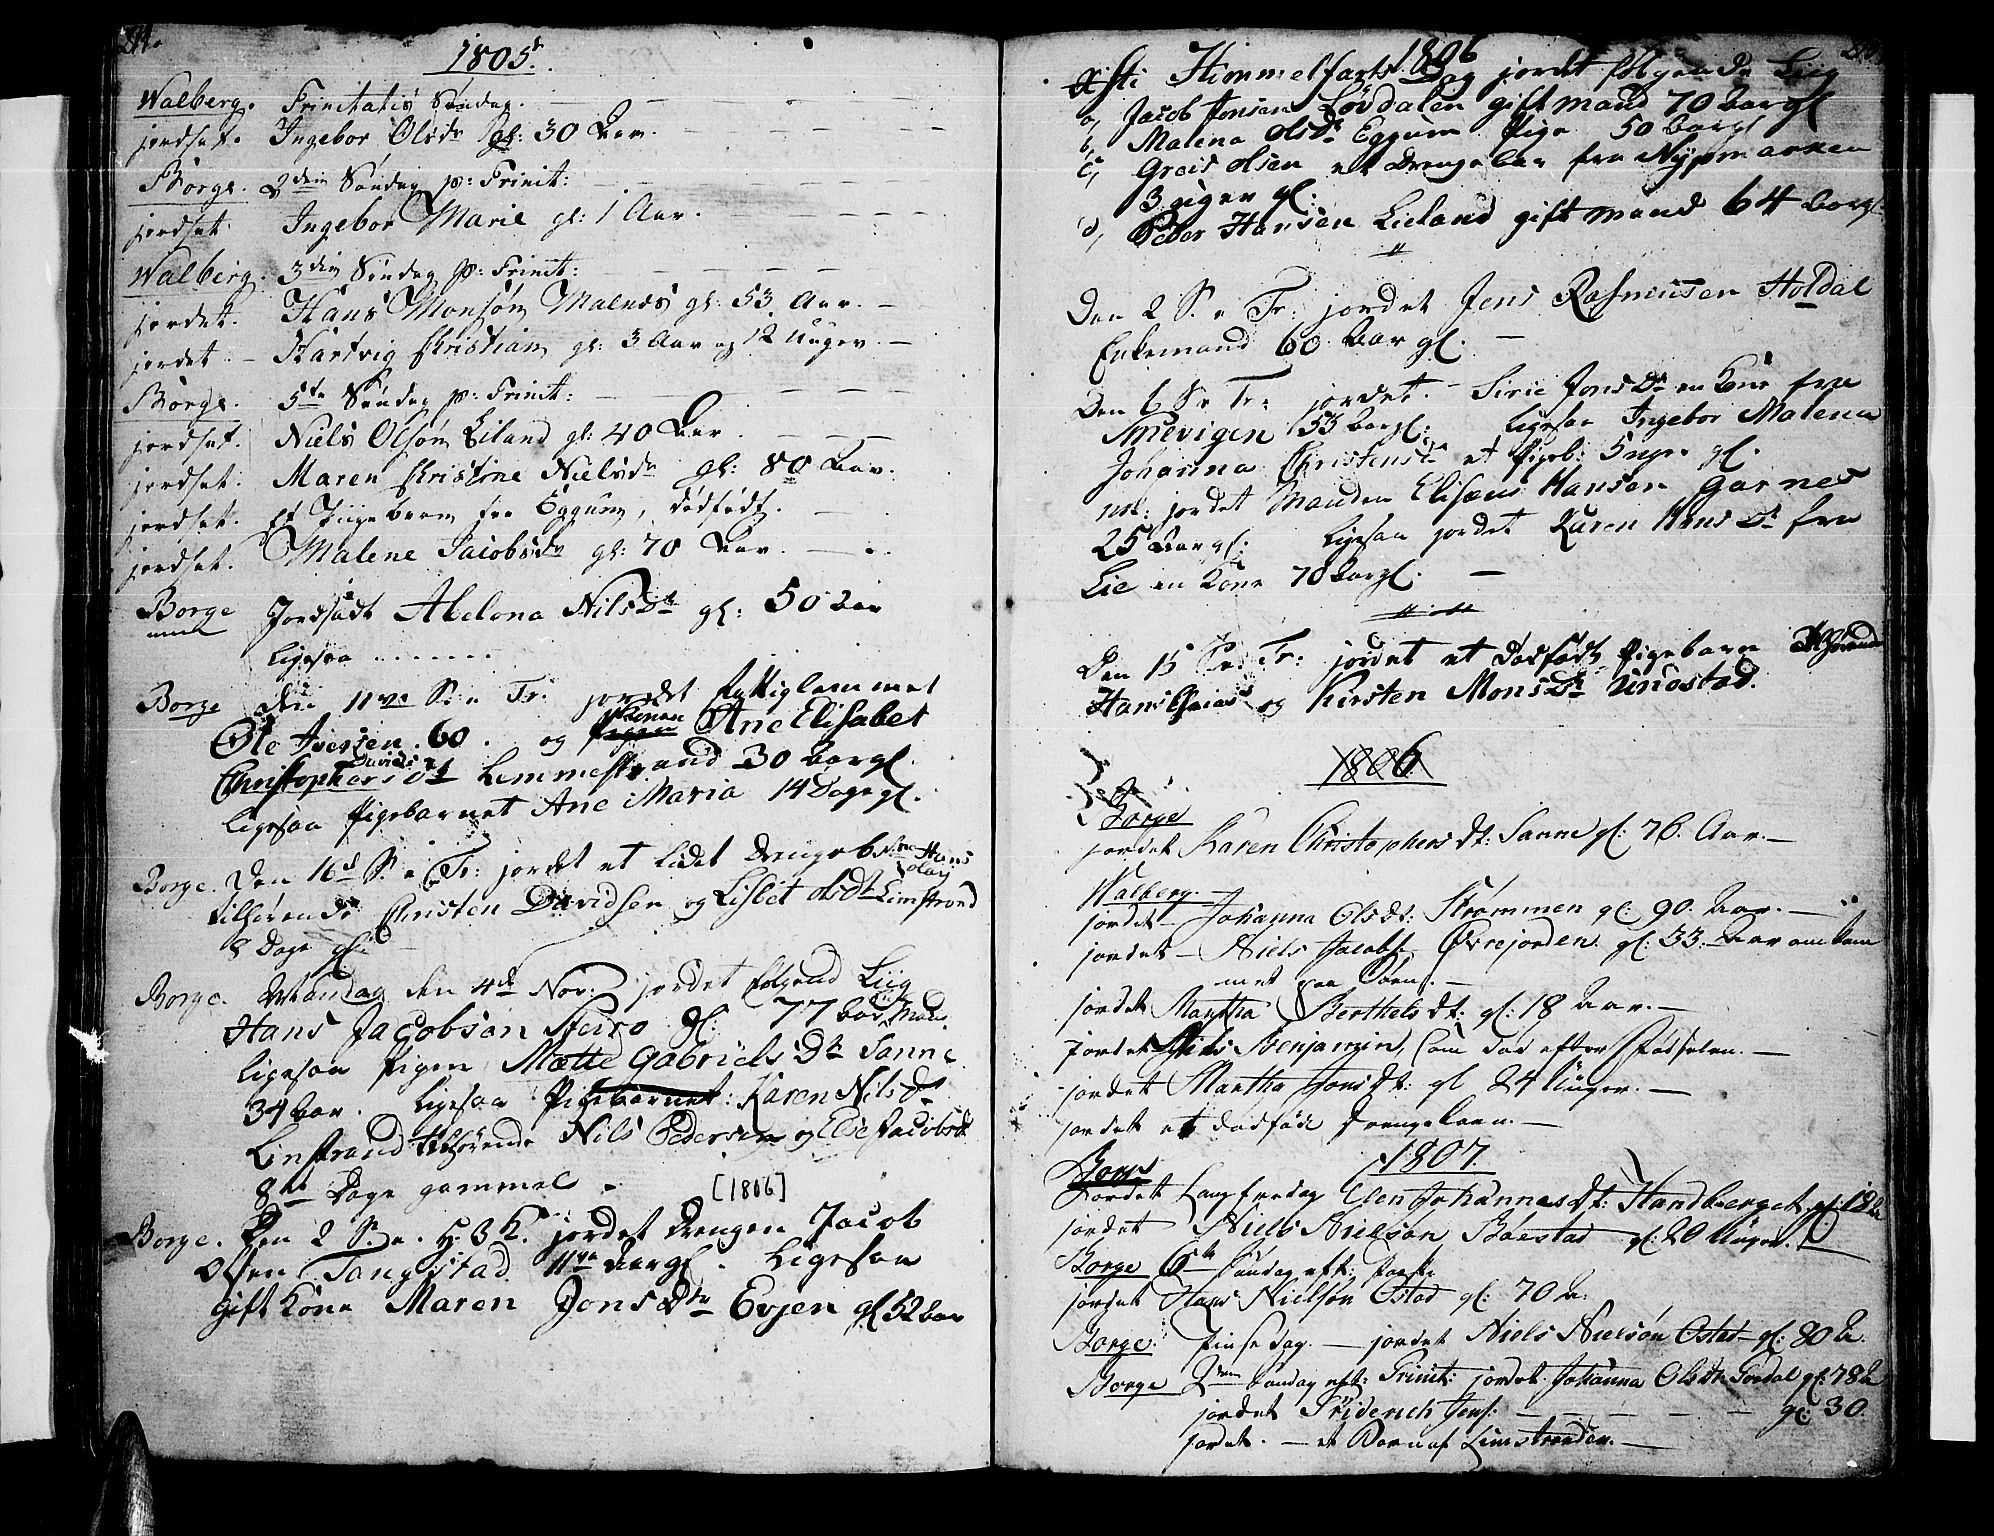 214.
1805.
Walberg. Trinitatis Søndag.
jordset. Ingebor Olsdr gl: 30 Aar.
Borge. 2den Søndag p: Trinit:
jordset. Ingebor Marie gl: 1 Aar.
Walberg. 3die Søndag p: Trinit:
jordet. Hans Monsøn Malnes gl: 53 Aar.
jordet Hartvig Kristian gl: 3 Aar og 12 Uuger.
Borge. 5te Søndag p: Trinit:
jordset. Niels Olsøn Eiland gl: 40 Aar.
jordset. Maren Kristine Nielsdr gl: 80 Aar.
jordset. Et Piigebarn fra Eggum, dødfødt.
jordset. Malene Jacobsdr gl: 70 Aar.
Borge Jordsadt Abelona Nilsdr gl: 50 Aar
ligesaa .......
Borge den 11te S: e Tr. jordet fattiglemmet
Ole Iversen 60. og Konen Ane Elisabet
Christophersdt Davids Lemmestrand 30 Aar gl.
ligesaa Pigebarnet Ane Maria 14 Dage gl.
Borge. Den 16de S. e Tr: jordet et lidet Drengeb. Nvn Hans Olay
tilhørende Christen Davidsen og Lisbet Olsdt Limstrand
8 Dage gl.
Borge. Mandag den 4de Nov. jordet følgend Liig
Hans Jacobsen Steiro gl: 77 Aar Mand
ligesaa Pigen Mætte Gabriels Dtr Sanne
34 Aar. ligesaa Pigebarnet: Karen Nilsdr
Linstrand tilhørende Nils Pedersen og Else Jacobsdt
8te Dage gammel. [1806]
Borge. Den 2 S. e. H: 3 K. jordet Drengen Jacob
Olsen Tangstad 11ve Aar gl. Ligesaa
Gift Kone Maren Jons Dtr Evjen gl 52 Aar
1806
Xsti Himmelfarts Dag jordet følgende Liig
a, Jacob Jonsen Løvdalen gift mand 70 Aar gl
b, Malena Olsdr Eggum Pige 50 Aar gl
c, Greis Olsen et Drengebar fra Nypmarken
3 uger gl:
d, Peder Hansen Lieland gift mand 64 Aar gl.
Den 2 S. e Tr: jordet Jens Rasmusen Holdal
Enkemand 60 Aar gl.
Den 6 S e Tr: jordet. Sirie Jons Dr en Kone fra
Smevigen 53 Aar gl: ligesaa Ingebor Malena
Johanna Christensdr et Pigeb: 5 ugr gl.
jordet Manden Elisæus Hansen Garnes
25 Aar gl: ligesaa jordet Karen Hans Dr fra
Lie en Kone 70 Aar gl.
Den 15 S e Tr: jordet et dødfødt Pigebarn tilhørende
Hans Esaias og Kirsten Mons Dr Undstad.
1806
Borge
jordet Karen Christophersdt: Sanne gl: 76. Aar.
Walberg.
jordet Johanna Olsdt: Strømmen gl: 90. Aar.
jordet Niels Jacobs. Øvrejorden gl: 33. Aar omkom
met paa Søen.
jordet Martha Berthelsdt: gl: 18 Aar.
jordet Niels Benjamin, som død efter Fødselen.
jordet Martha Jonsdt: gl 24 Uuger.
jordet et dødføde Drengebarn.
1807.
Borge
jordet Langfredag Elen Johannesdt: Handberget. gl: 18 A
jordet Niels Nielsøn Bøestad gl: 20 Uuger.
Borge 6te Søndag eft: Paaske
jordet Hans Nielsøn Ostad gl: 70 A.
Borge. Pinsedag. jordet Niels Nielsøn Ostad gl: 80 A.
Borge 2den Søndag eft: Trinit: jordet Johanna Olsdtr Gordal gl: 78 A
jordet Friderich Jens: gl: 30.
jordet. et Barn af Limstranden.